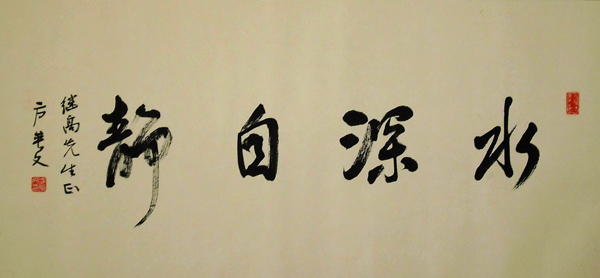 水深自静
继高先生正